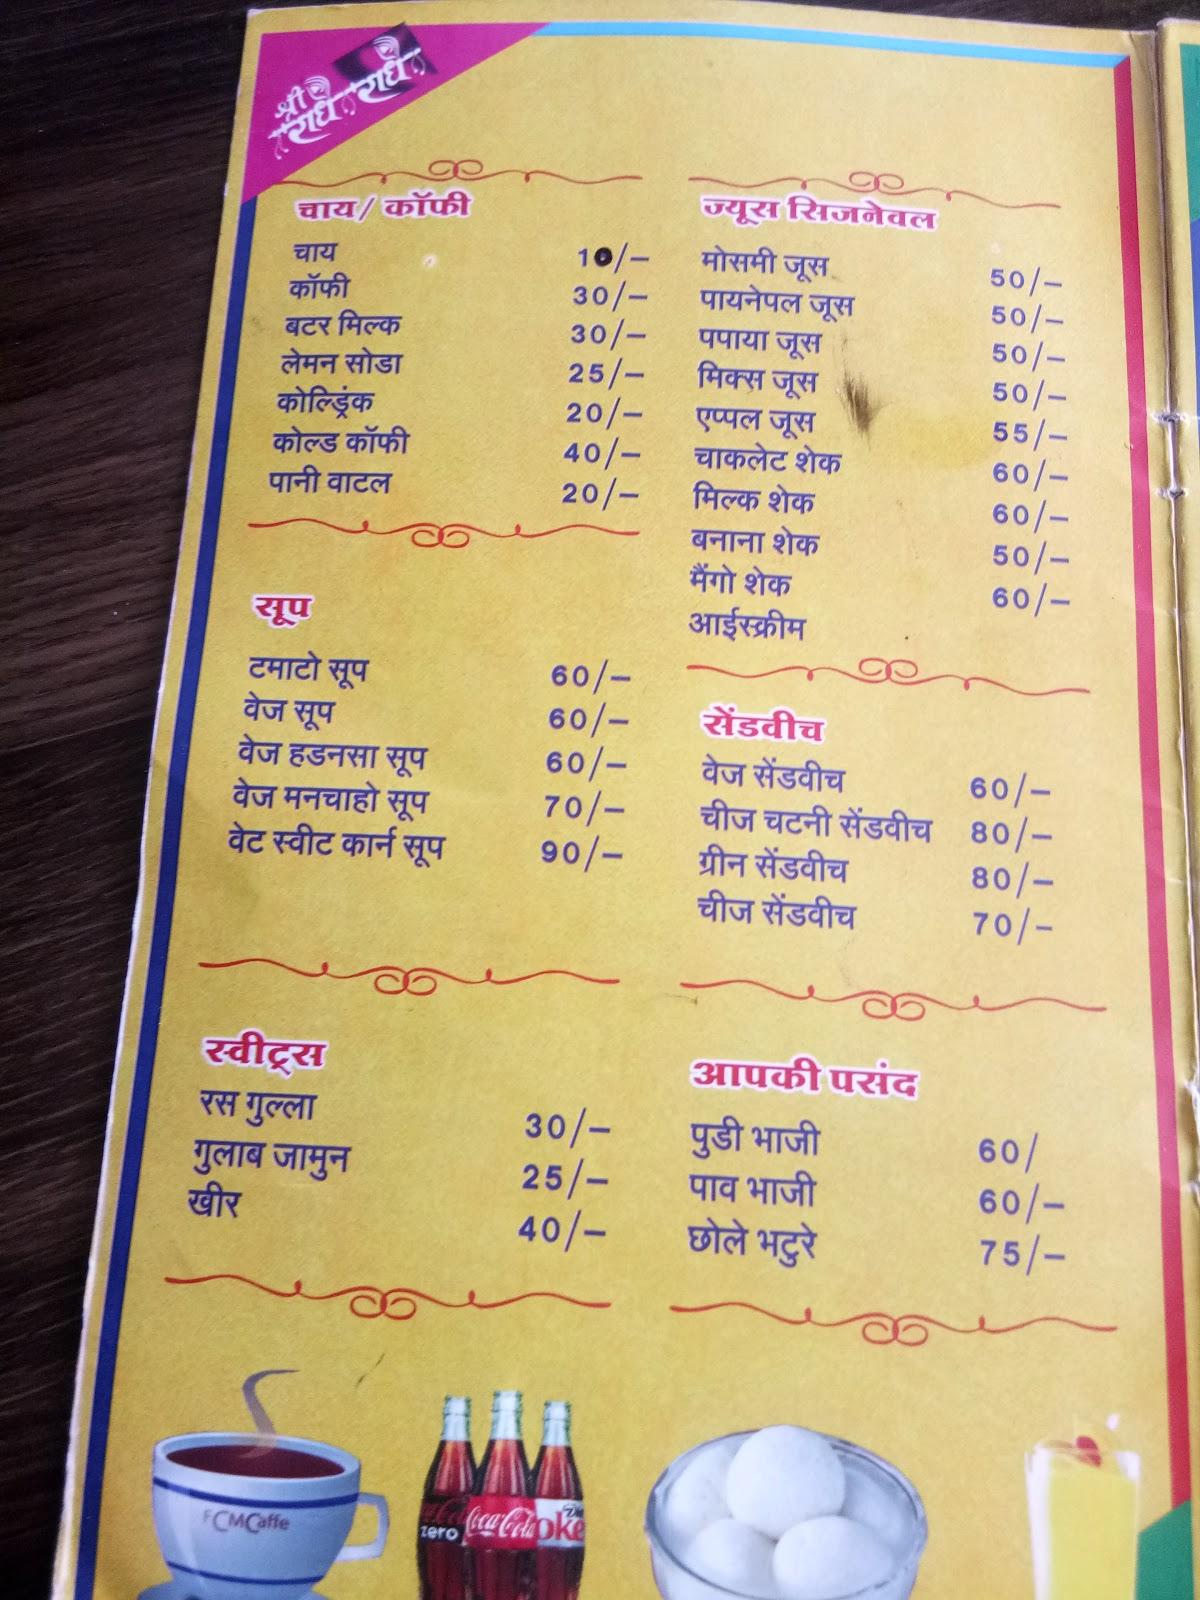 श्री
राधे राधे
चाय/ कॉफी
चाय 10/–
कॉफी 30/–
बटर मिल्क 30/–
लेमन सोडा 25/–
कोल्ड्रिंक 20/–
कोल्ड कॉफी 40/–
पानी वाटल 20/–
सूप
टमाटो सूप 60/–
वेज सूप 60/–
वेज हडनसा सूप 60/–
वेज मनचाहो सूप 70/–
वेट स्वीट कार्न सूप 90/–
स्वीट्स
रस गुल्ला 30/–
गुलाब जामुन 25/–
खीर 40/–
ज्यूस सिजनेवल
मोसमी जूस 50/–
पायनेपल जूस 50/–
पपाया जूस 50/–
मिक्स जूस 50/–
एप्पल जूस 55/–
चाकलेट शेक 60/–
मिल्क शेक 60/–
बनाना शेक 50/–
मैंगो शेक 60/–
आईस्क्रीम
सेंडवीच
वेज सेंडवीच 60/–
चीज चटनी सेंडवीच 80/–
ग्रीन सेंडवीच 80/–
चीज सेंडवीच 70/–
आपकी पसंद
पुडी भाजी 60/
पाव भाजी 60/–
छोले भटुरे 75/–
FCMCaffe
zero Coca-Cola oke